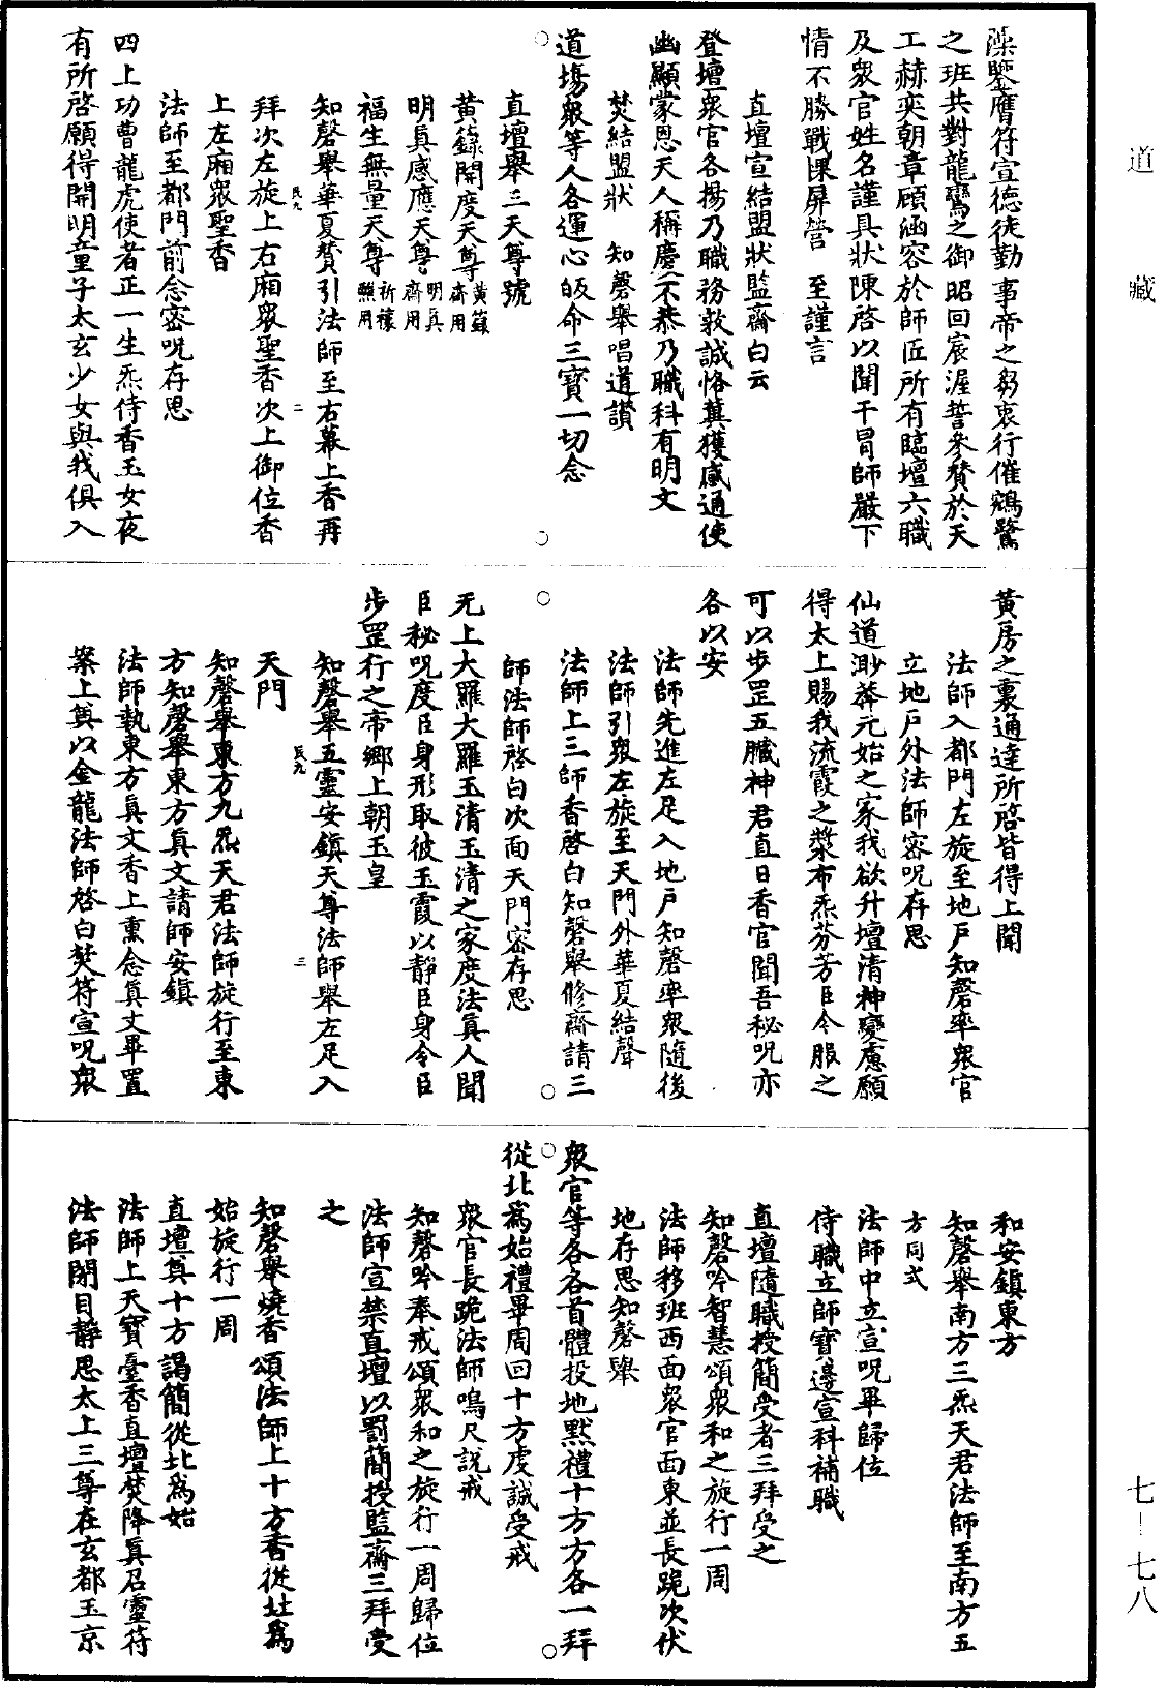 藻鑒膺符宣德徒勤事帝之芻衷行催鵷鷺
之班共對龍鸞之御昭回宸渥誓參贊於天
工赫奕朝章顧涵容於師匠所有臨壇六職
及衆官姓名謹具狀陳啓以聞干冒師嚴下
情不勝戰慄屏營 至謹言
直壇宣結盟狀監齋白云
登壇衆官各揚乃職務敦誠恪冀獲感通使
幽顯蒙恩天人稱慶不恭乃職科有明文
焚結盟狀 知磬舉唱道讃
道塲衆等人各運心皈命三寶一切念
直壇舉三天尊號
黃籙開度天尊黃籙齋用
明眞感應天尊明眞齋用
福生無量天尊祈禳醮用
知磬舉華夏贊引法師至右幕上香再
拜次左旋上右廂衆聖香次上御位香
上左廂衆聖香
法師至都門前念密呪存思
四上功曹龍虎使者正一生炁侍香玉女夜
有所啓願得開明童子太玄少女與我俱入
黃房之裏通達所啓皆得上聞
法師入都門左旋至地戶知磬率衆官
立地戶外法師密呪存思
仙道渺莾元始之家我欲升壇清神變慮願
得太上賜我流霞之漿布炁芬芳臣今服之
可以步罡五臟神君直日香官聞吾秘呪亦
各以安
法師先進左足入地戶知磬率衆隨後
法師引衆左旋至天門外華夏結聲
法師上三師香啓白知磬舉修齋請三
師法師啓白次面天門密存思
无上大羅大羅玉清玉清之家度法眞人聞
臣秘呪度臣身形取彼玉霞以靜臣身令臣
步罡行之帝鄉上朝玉皇
知磬舉五靈安鎭天尊法師舉左足入
天門
知磬舉東方九炁天君法師旋行至東
方知磬舉東方眞文請師安鎭
法師執東方眞文香上熏念眞文畢置
案上奠以金龍法師啓白焚符宣呪衆
和安鎭東方
知磬舉南方三炁天君法師至南方五
方同式
法師中立宣呪畢歸位
侍職立師寶邊宣科補職
直壇隨職授簡受者三拜受之
知磬吟智慧頌衆和之旋行一周
法師移班西面衆官面東並長跪次伏
地存思知磬舉
衆官等各各首體投地默禮十方方各一拜
從北爲始禮畢周回十方虔誠受戒
衆官長跪法師鳴尺說戒
知磬吟奉戒頌衆和之旋行一周歸位
法師宣禁直壇以罰簡授監齋三拜受
之
知磬舉燒香頌法師上十方香從北爲
始旋行一周
直壇奠十方謁簡從北爲始
法師上天寶臺香直壇焚降眞召靈符
法師閉目靜思太上三尊在玄都玉京
民九
二
民九
三
道藏
七—七八